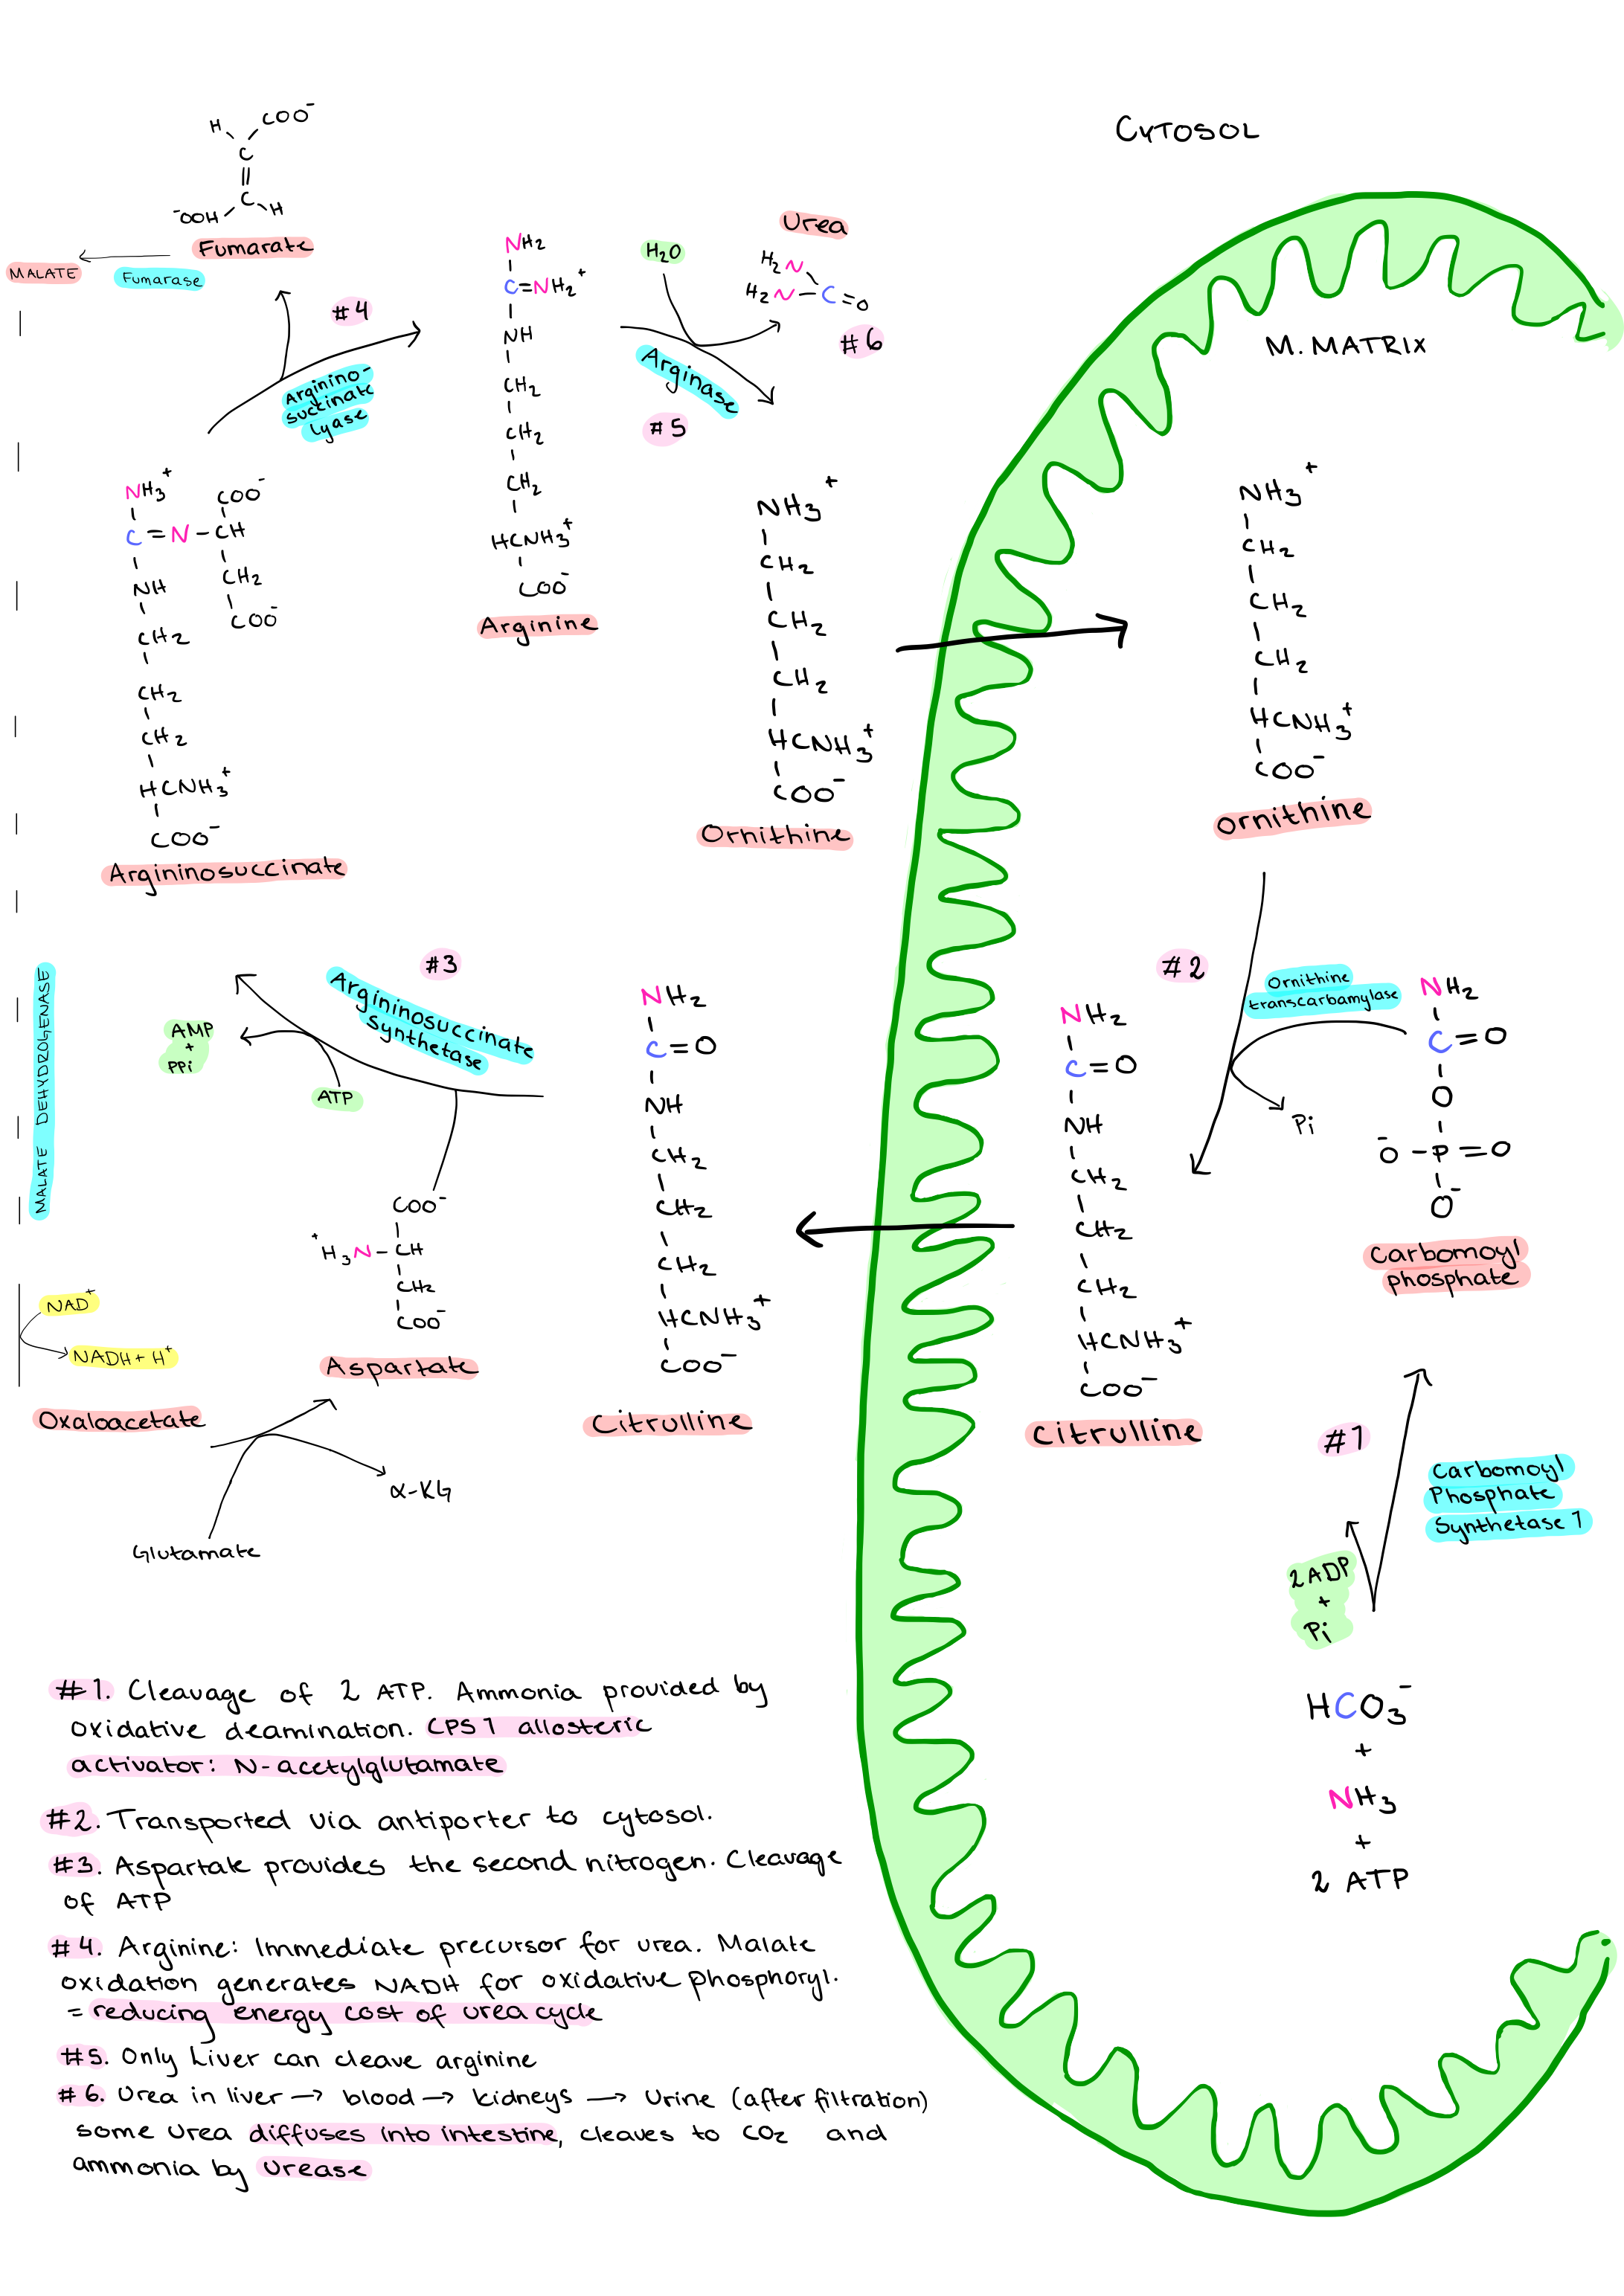 CYTOSOL
M. MATRIX
H COO⁻
C
||
C
⁻OOH H
Fumarate
MALATE
Fumarase
#4
Arginino-
succinate
lyase
NH₂
C=NH₂⁺
NH
CH₂
CH₂
CH₂
HCNH₃⁺
COO⁻
Arginine
H₂O
Arginase
#5
Urea
H₂N
H₂N-C=O
#6
NH₃⁺ COO⁻
C=N-CH
NH CH₂
CH₂ COO⁻
CH₂
CH₂
HCNH₃⁺
COO⁻
Argininosuccinate
NH₃⁺
CH₂
CH₂
CH₂
HCNH₃⁺
COO⁻
Ornithine
NH₃⁺
CH₂
CH₂
CH₂
HCNH₃⁺
COO⁻
Ornithine
#2
Ornithine
transcarbamylase
Pi
NH₂
C=O
O
⁻O-P=O
O⁻
Carbomoyl
phosphate
NH₂
C=O
NH
CH₂
CH₂
CH₂
HCNH₃⁺
COO⁻
Citrulline
NH₂
C=O
NH
CH₂
CH₂
CH₂
HCNH₃⁺
COO⁻
Citrulline
#3
Argininosuccinate
synthetase
AMP
+
PPi
ATP
COO⁻
⁺H₃N-CH
CH₂
COO⁻
Aspartate
MALATE DEHYDROGENASE
NAD⁺
NADH + H⁺
Oxaloacetate
α-KG
Glutamate
#1
Carbomoyl
Phosphate
Synthetase 1
2ADP
+
Pi
HCO₃⁻
+
NH₃
+
2 ATP
#1. Cleavage of 2 ATP. Ammonia provided by
oxidative deamination. CPS1 allosteric
activator: N-acetylglutamate
#2. Transported via antiporter to cytosol.
#3. Aspartate provides the second nitrogen. Cleavage
of ATP
#4. Arginine: Immediate precursor for urea. Malate
oxidation generates NADH for oxidative phosphoryl.
= reducing energy cost of urea cycle
#5. Only Liver can cleave arginine
#6. Urea in liver → blood → kidneys → Urine (after filtration)
some urea diffuses into intestine, cleaves to CO₂ and
ammonia by urease